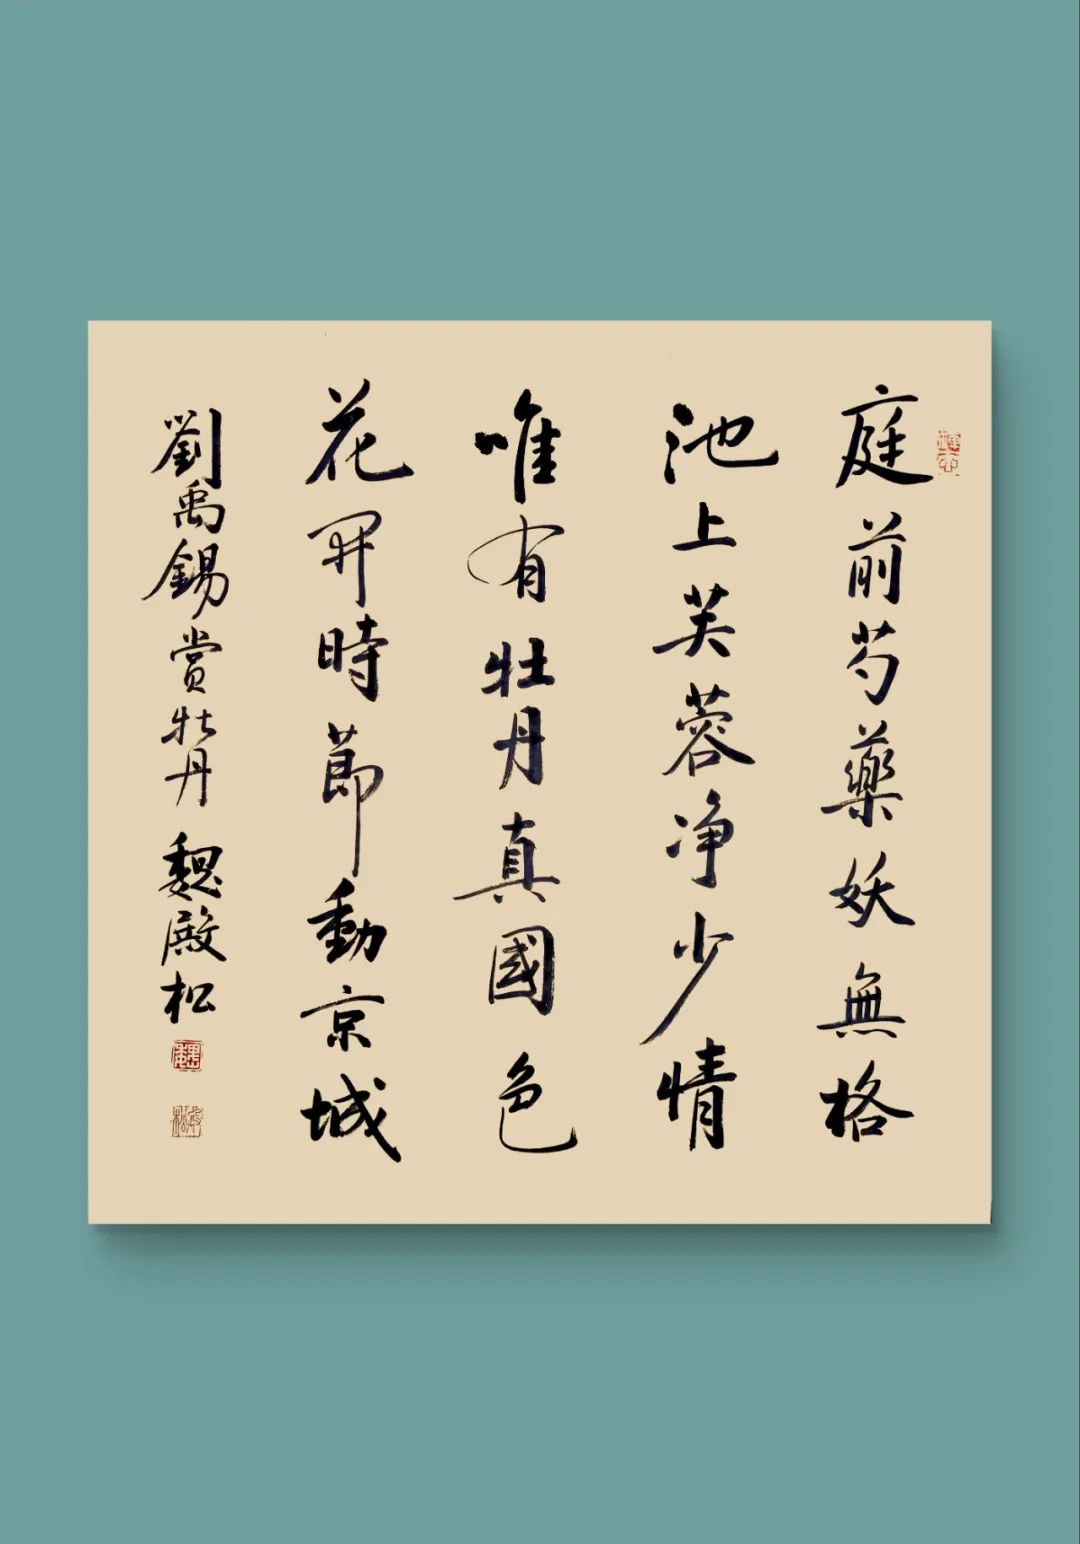 庭前芍藥妖無格
池上芙蓉净少情
唯有牡丹真國色
花開時節動京城
劉禹錫賞牡丹 魏殿松